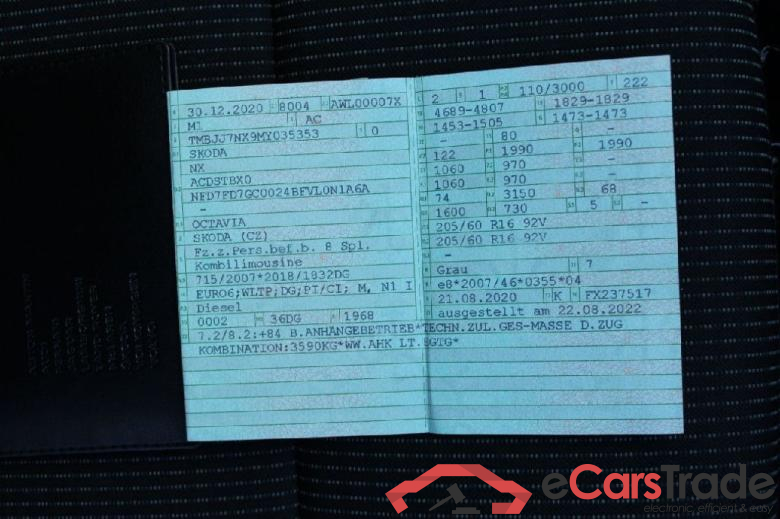 30.12.2020 8004 AWL00007X
M1 AC
TMBJJ7NX9MY035353 0
SKODA
NX
ACDSTBX0
NFD7FD7GC0024BFVLON1A6A
-
OCTAVIA
SKODA (CZ)
Fz.z.Pers.bef.b. 8 Spl.
Kombilimousine
715/2007*2018/1832DG
EURO6;WLTP;DG;PI/CI; M, N1 I
Diesel
0002 36DG 1968
7.2/8.2:+84 B.ANHÄNGEBETRIEB*TECHN.ZUL.GES-MASSE D.ZUG
KOMBINATION:3590KG*WW.AHK LT. EGTG*
2 1 110/3000 222
4689-4807 1829-1829
1453-1505 1473-1473
- 80 -
122 1990 1990
1060 970 -
1060 970 -
74 3150 68
1600 730 5 -
205/60 R16 92V
205/60 R16 92V
-
Grau 7
e8*2007/46*0355*04
21.08.2020 K FX237517
ausgestellt am 22.08.2022
eCarsTrade
electronic, efficient & easy